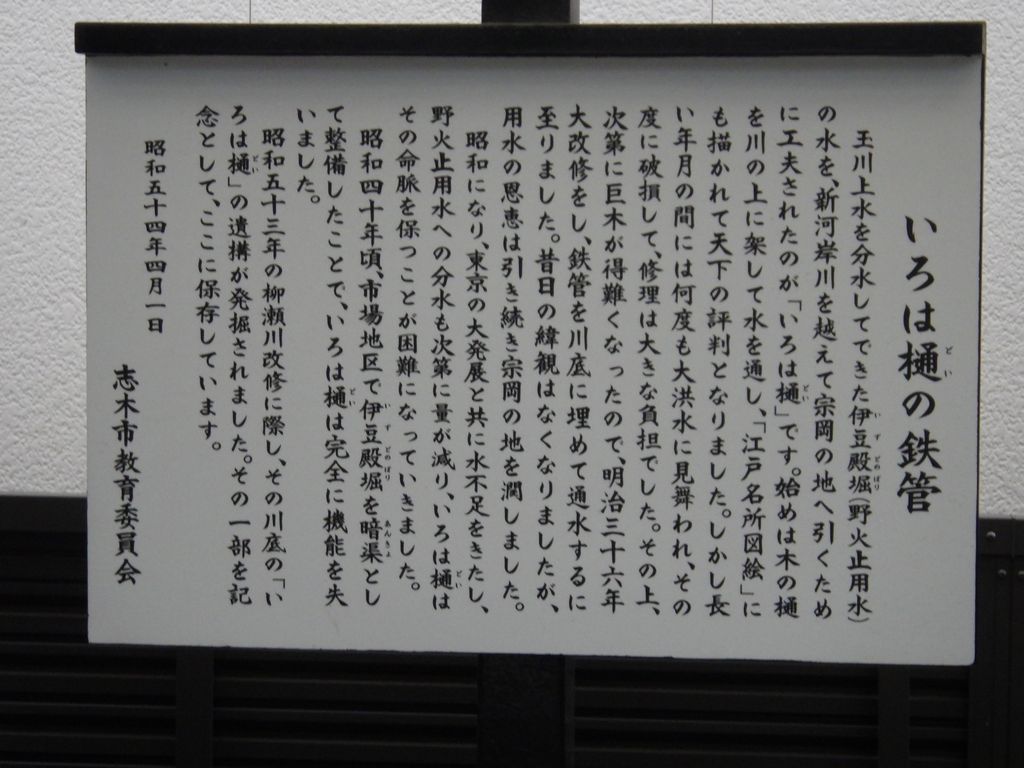 いろは樋の鉄管
玉川上水を分水してできた伊豆殿堀(野火止用水)
の水を、新河岸川を越えて宗岡の地へ引くため
に工夫されたのが「いろは樋」です。始めは木の樋
を川の上に架して水を通し、「江戸名所図絵」に
も描かれて天下の評判となりました。しかし長
い年月の間には何度も大洪水に見舞われ、その
度に破損して、修理は大きな負担でした。その上、
次第に巨木が得難くなったので、明治三十六年
大改修をし、鉄管を川底に埋めて通水するに
至りました。昔日の緯観はなくなりましたが、
用水の恩恵は引き続き宗岡の地を潤しました。
昭和になり、東京の大発展と共に水不足をきたし、
野火止用水への分水も次第に量が減り、いろは樋は
その命脈を保つことが困難になっていきました。
昭和四十年頃、市場地区で伊豆殿堀を暗渠とし
て整備したことで、いろは樋は完全に機能を失
いました。
昭和五十三年の柳瀬川改修に際し、その川底の「い
ろは樋」の遺構が発掘されました。その一部を記
念として、ここに保存しています。
昭和五十四年四月一日
志木市教育委員会